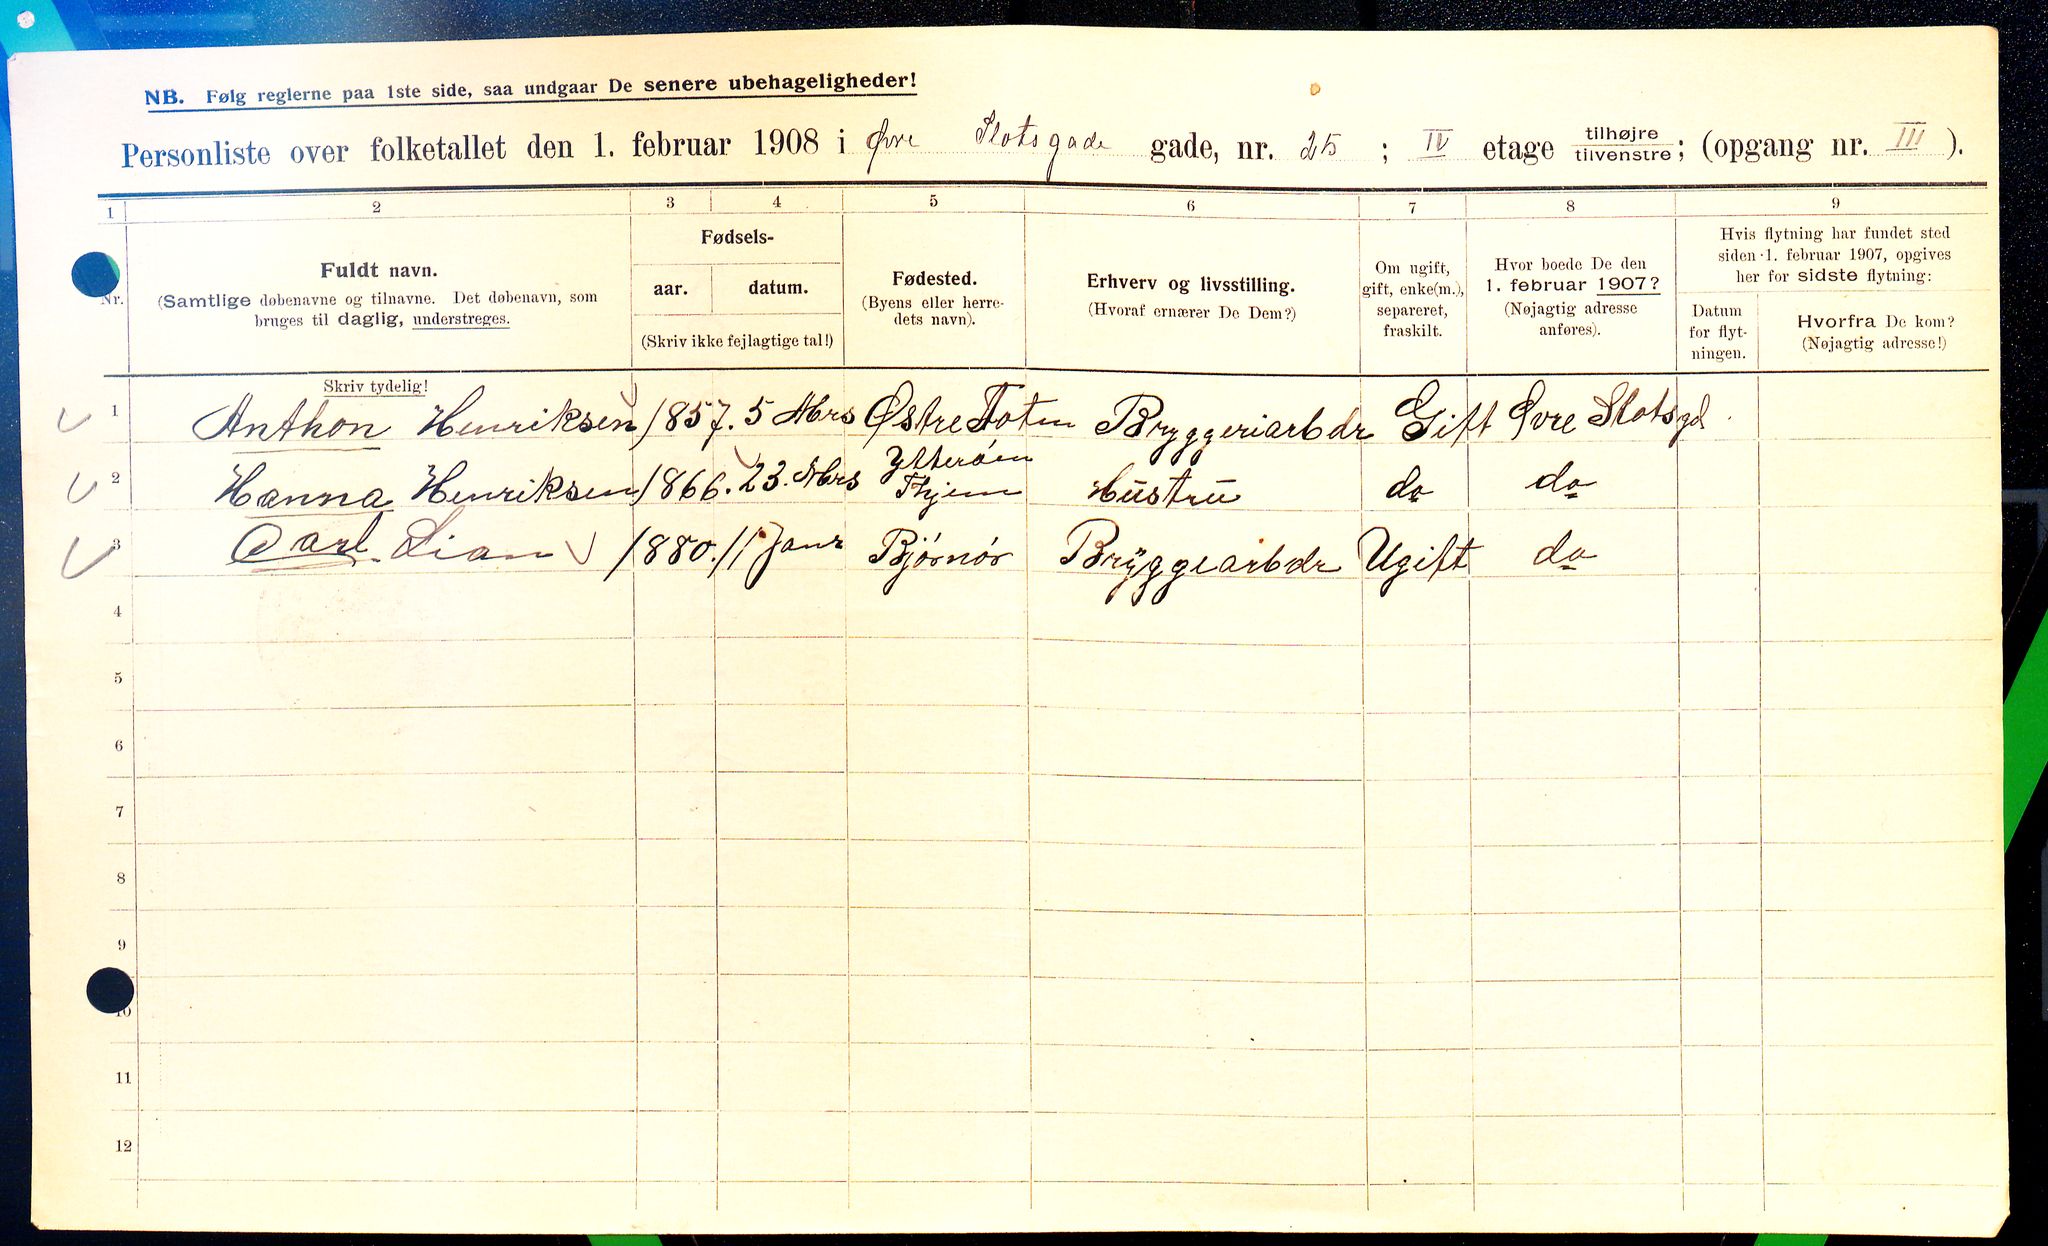 NB. Følg reglerne paa 1ste side, saa undgaar De senere ubehageligheder!
Personliste over folketallet den 1. februar 1908 i Øvre Slotsgade gade, nr. 25 ; IV etage tilhøjre tilvenstre ; (opgang nr. III ).
1 2 3 4 5 6 7 8 9
Nr.
Fuldt navn.
(Samtlige døbenavne og tilnavne. Det døbenavn, som
bruges til daglig, understreges.
Skriv tydelig!
Fødsels-
aar. datum.
(Skriv ikke fejlagtige tal!)
Fødested.
(Byens eller herre-
dets navn).
Erhverv og livsstilling.
(Hvoraf ernærer De Dem?)
Om ugift,
gift, enke(m.),
separeret,
fraskilt.
Hvor boede De den
1. februar 1907?
(Nøjagtig adresse
anføres).
Hvis flytning har fundet sted
siden 1. februar 1907, opgives
her for sidste flytning:
Datum
for flyt-
ningen.
Hvorfra De kom?
(Nøjagtig adresse!)
1 Anthon Henriksen 1857. 5 Mrs Østre Toten Bryggeriarbdr Gift Øvre Slotsgd.
2 Hanna Henriksen 1866. 23. Mrs Ytterøen Thjem Hustru do do
3 Carl Lian 1880. 11 Janr Bjørnør Bryggearbdr Ugift do
4
5
6
7
8
9
10
11
12